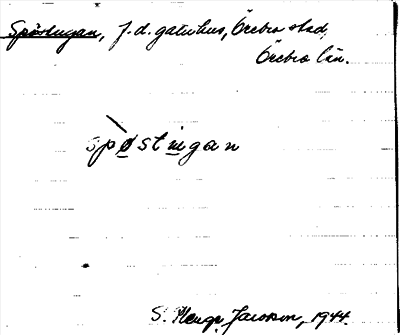 Spöstugan, f.d. gatuhus, Örebro stad,
Örebro län.
spøstugan
S. Jansson, 1944